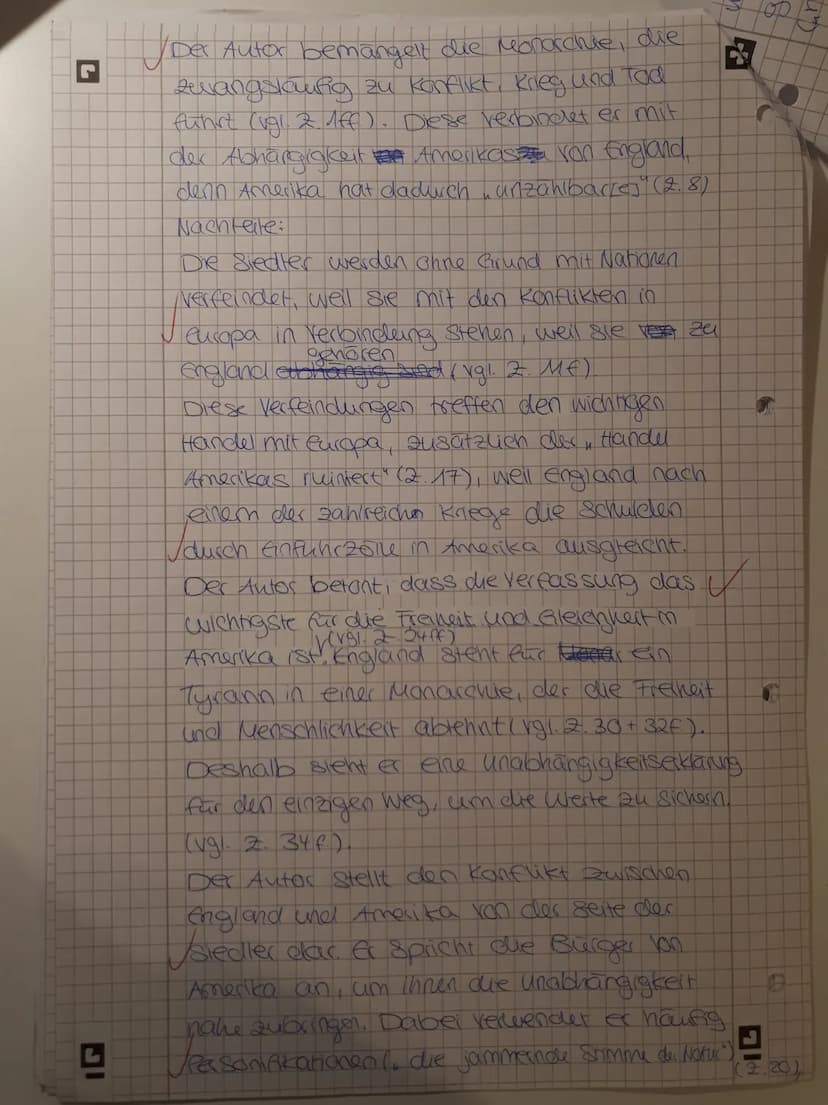 Der Autor bemängelt die Monarchie, die
zwangsläufig zu Konflikt, Krieg und Tod
führt (vgl. Z. 1ff). Diese verbindet er mit
der Abhängigkeit Amerikas von England,
denn Amerika hat dadurch „unzählbar[e]" (Z. 8)
Nachteile:
Die Siedler werden ohne Grund mit Nationen
verfeindet, weil sie mit den Konflikten in
Europa in Verbindung stehen, weil sie zu
gehören
England (vgl. Z. 11f)
Diese Verfeindungen treffen den wichtigen
Handel mit Europa, zusätzlich der „Handel
Amerikas ruiniert" (Z. 17), weil England nach
einem der zahlreichen Kriege die Schulden
durch Einfuhrzölle in Amerika ausgleicht.
Der Autor betont, dass die Verfassung das
wichtigste für die Freiheit und Gleichheit in
(vgl. Z. 34f)
Amerika ist. England steht für ein
Tyrann in einer Monarchie, der die Freiheit
und Menschlichkeit ablehnt (vgl. Z. 30 + 32f).
Deshalb sieht er eine Unabhängigkeitserklärung
für den einzigen Weg, um die Werte zu sichern
(vgl. Z. 34f).
Der Autor stellt den Konflikt zwischen
England und Amerika von der Seite der
Siedler dar. Er spricht die Bürger von
Amerika an, um ihnen die Unabhängigkeit
nahe zubringen. Dabei verwendet er häufig
Personifikationen („die jammernde Stimme der Natur")
(Z. 20)